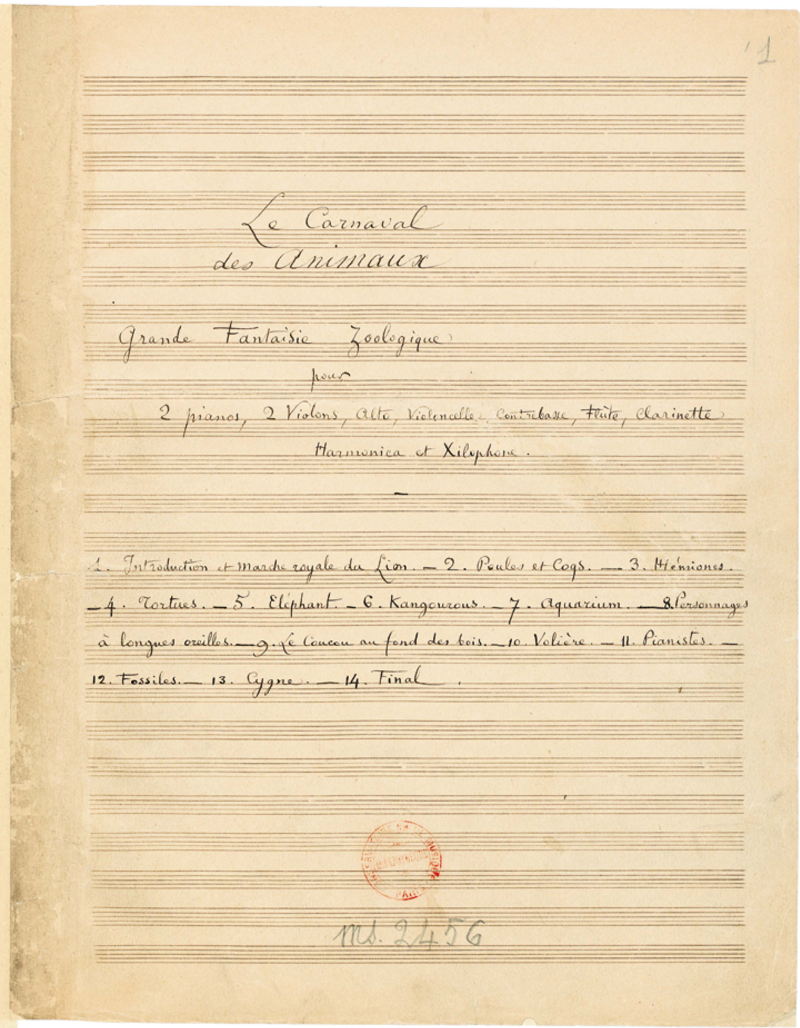 1
Le Carnaval
des Animaux
Grande Fantaisie Zoologique
pour
2 pianos, 2 Violons, Alto, Violoncelle, Contrebasse, Flûte, Clarinette
Harmonica et Xilophone.
1. Introduction et marche royale du Lion. — 2. Poules et Coqs. — 3. Hémiones.
— 4. Tortues. — 5. Eléphant. — 6. Kangourous. — 7. Aquarium. — 8. Personnages
à longues oreilles. — 9. Le Coucou au fond des bois. — 10. Volière. — 11. Pianistes. —
12. Fossiles. — 13. Cygne. — 14. Final.
ms. 2456